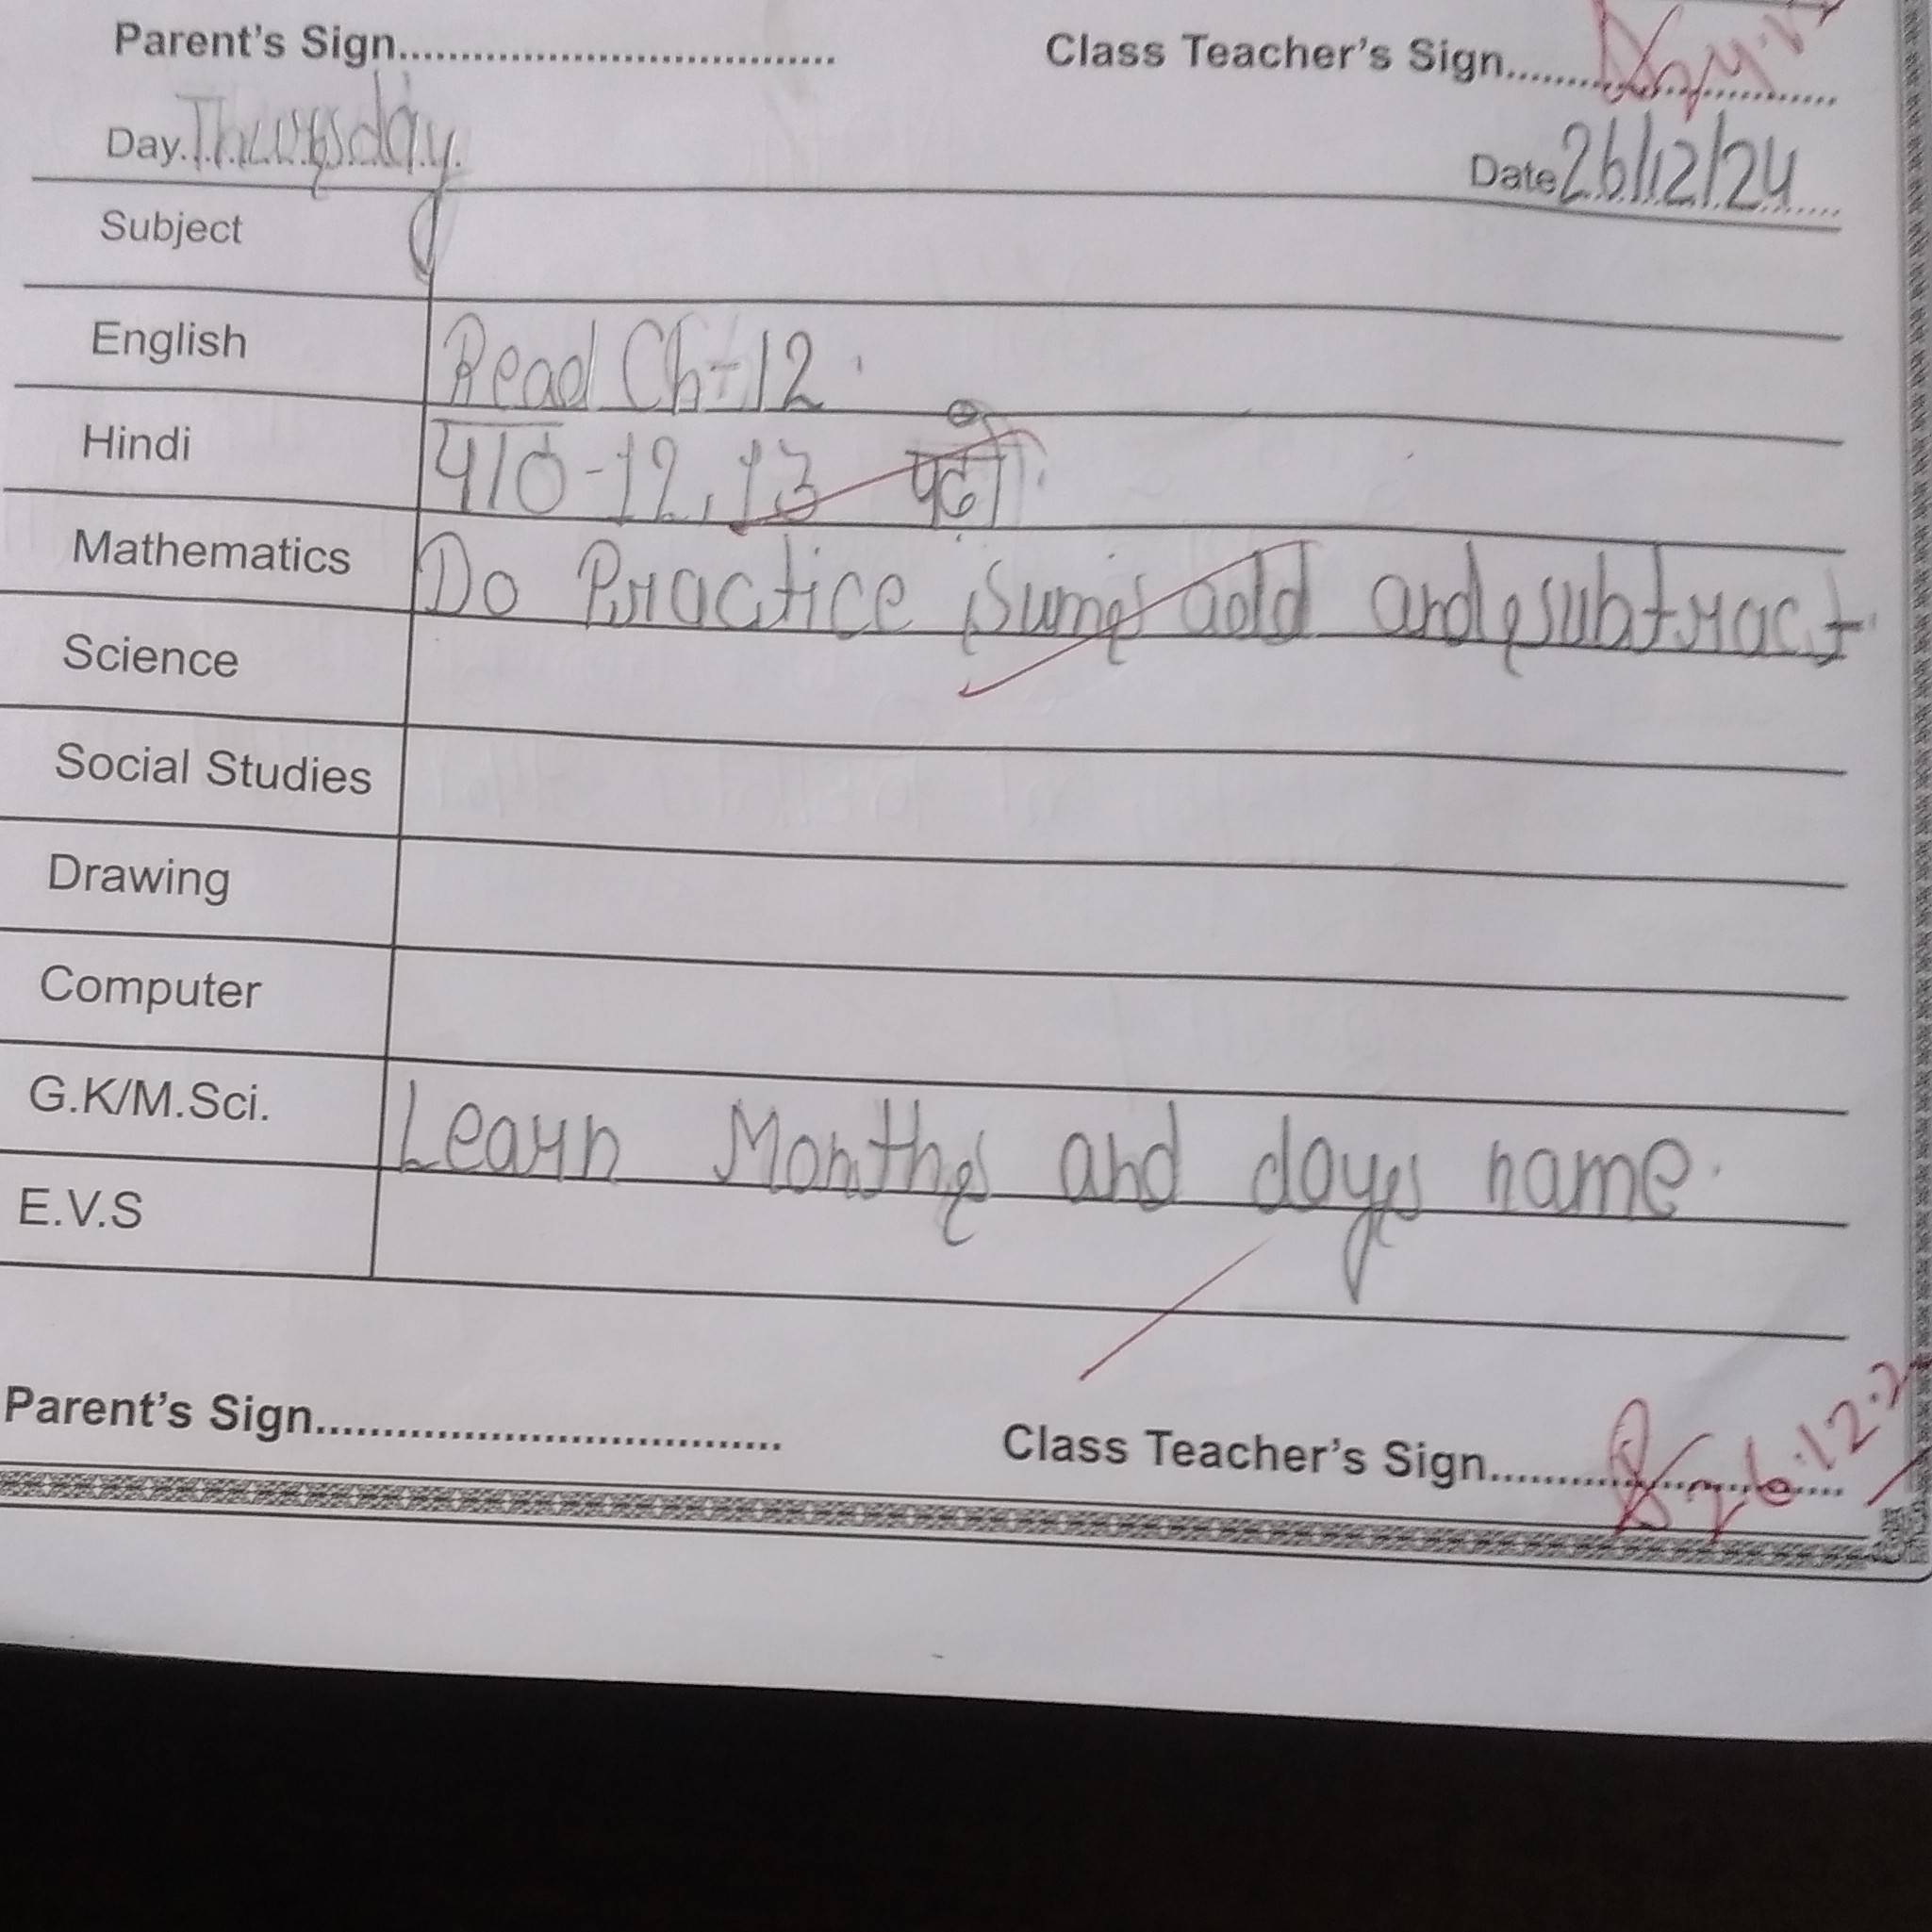 Parent's Sign.................................. Class Teacher's Sign..............................
Day. Thursday. Date 26/12/24
Subject
English Read Ch-12.
Hindi पाठ-12, 13 पढ़ो।
Mathematics Do Practice sums add and subtract
Science
Social Studies
Drawing
Computer
G.K/M.Sci. Learn Months and days name.
E.V.S
Parent's Sign.................................. Class Teacher's Sign.............................. 26.12.2